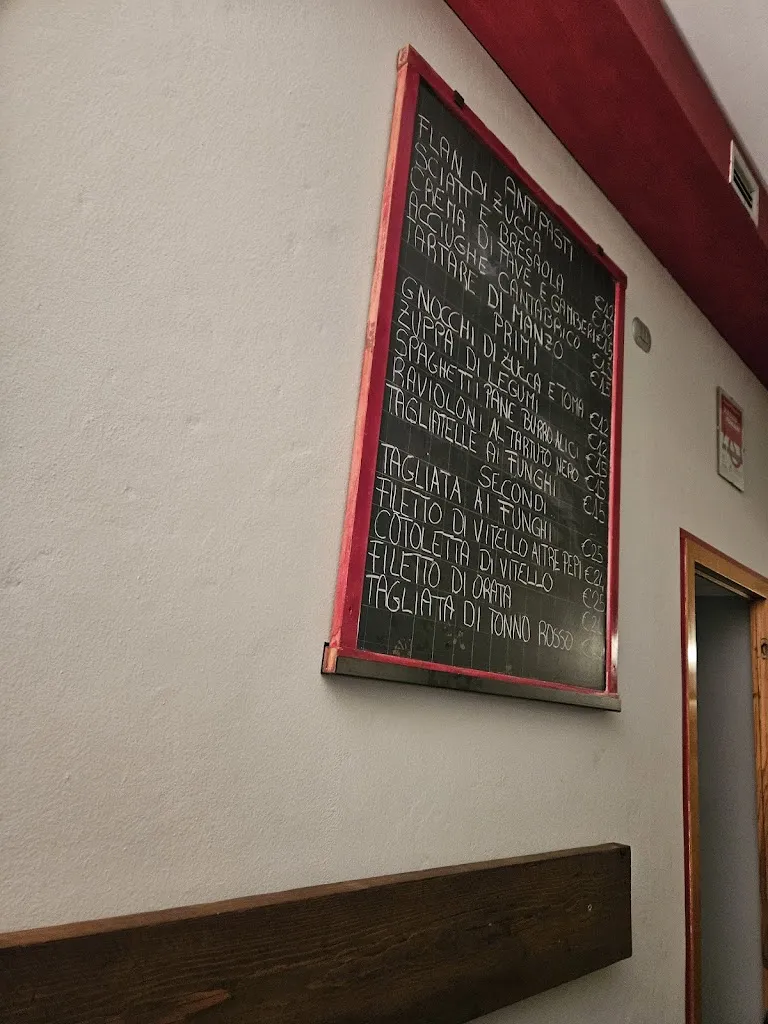 ANTIPASTI
FLAN DI ZUCCA €12
SCIATT E BRESAOLA €12
CREMA DI FAVE E GAMBERI €15
ACCIUGHE CANTABRICO
TARTARE DI MANZO €15
PRIMI
GNOCCHI DI ZUCCA E TOMA €12
ZUPPA DI LEGUMI €12
SPAGHETTI PANE BURRO ALICI €15
RAVIOLONI AL TARTUFO NERO €15
TAGLIATELLE AI FUNGHI €15
SECONDI
TAGLIATA AI FUNGHI €25
FILETTO DI VITELLO AI TRE PEPI
COTOLETTA DI VITELLO €25
FILETTO DI ORATA
TAGLIATA DI TONNO ROSSO